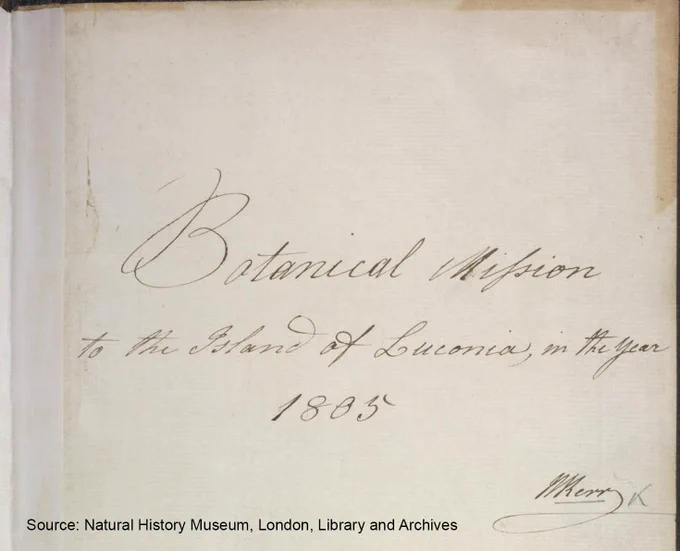 Botanical Miſsion
to the Island of Luconia, in the Year
1805
WKerr
K
Source: Natural History Museum, London, Library and Archives